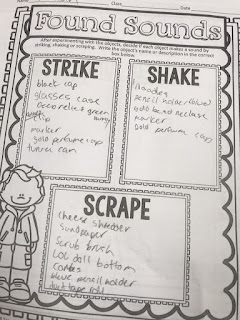 Class
Date
Found Sounds
After experimenting with the objects, decide if each object makes a sound by
striking, shaking or scraping. Write the object's name or description in the correct
box below.
STRIKE
black cap
glasses case
green
marker
gold perfume cap
SHAKE
pencil holder (blue)
gold bead necklace
marker
gold perfume cap
SCRAPE
cheese shredder
sandpaper
Scrub brush
LOL doll bottom
Combs
blue pencil holder